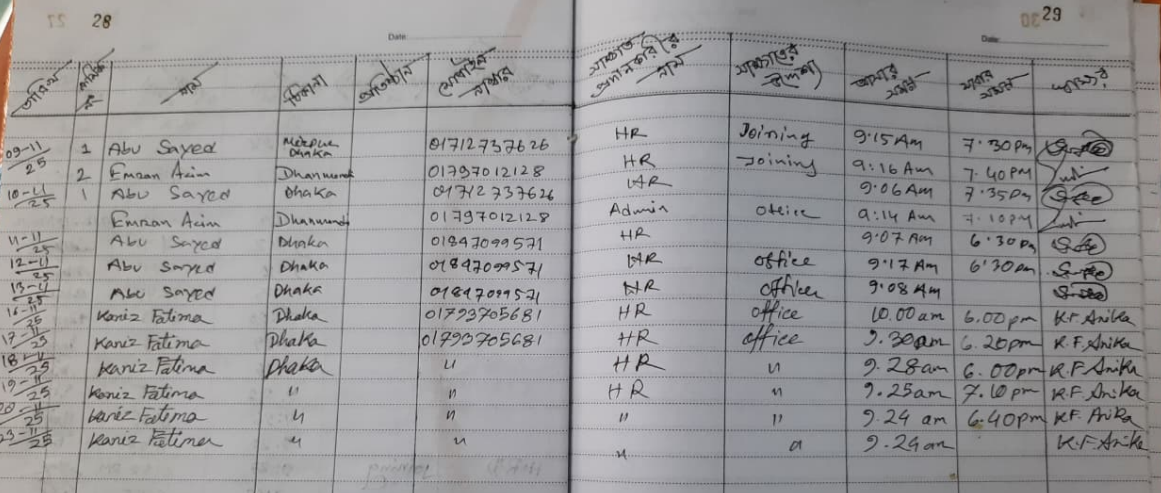 28
29
Date:
Date:
তারিখ ক্রমিক নং নাম ঠিকানা প্রতিষ্ঠান মোবাইল নাম্বার সাক্ষাত প্রদানকারীর নাম সাক্ষাতের উদ্দেশ্য আসার সময় যাবার সময় স্বাক্ষর
09-11/25 1 Abu Sayed Mirpur Dhaka 01712737626 HR Joining 9:15 Am 7.30 Pm
2 Emran Azim Dhanmondi 01797012128 HR Joining 9:16 Am 7.40 PM
10-11/25 1 Abu Sayed Dhaka 01712737626 HR 9:06 Am 7.35 Pm
Emran Azim Dhanmondi 01797012128 Admin Office 9:14 Am 7.10 PM
11-11/25 Abu Sayed Dhaka 01847099571 HR 9:07 Am 6.30 Pm
12-11/25 Abu Sayed Dhaka 01847099571 HR office 9:17 Am 6.30 pm
13-11/25 Abu Sayed Dhaka 01847099571 HR office 9:08 Am
16-11/25 Kaniz Fatima Dhaka 01793705681 HR office 10.00 am 6.00 pm K.F. Anika
17-11/25 Kaniz Fatima Dhaka 01793705681 HR office 9.30am 6.20pm K.F. Anika
18-11/25 Kaniz Fatima Dhaka " HR " 9.28am 6.00pm K.F Anika
19-11/25 Kaniz Fatima " " HR " 9.25am 7.10pm K.F. Anika
20-11/25 Kaniz Fatima " " " " 9.24 am 6.40pm K.F. Anika
23-11/25 Kaniz Fatima " " " " 9.24am K.F. Anika